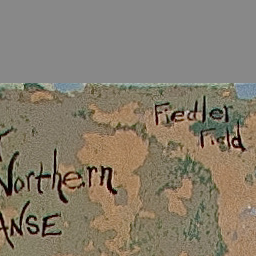 Fiedler
Field
Northern
ANSE